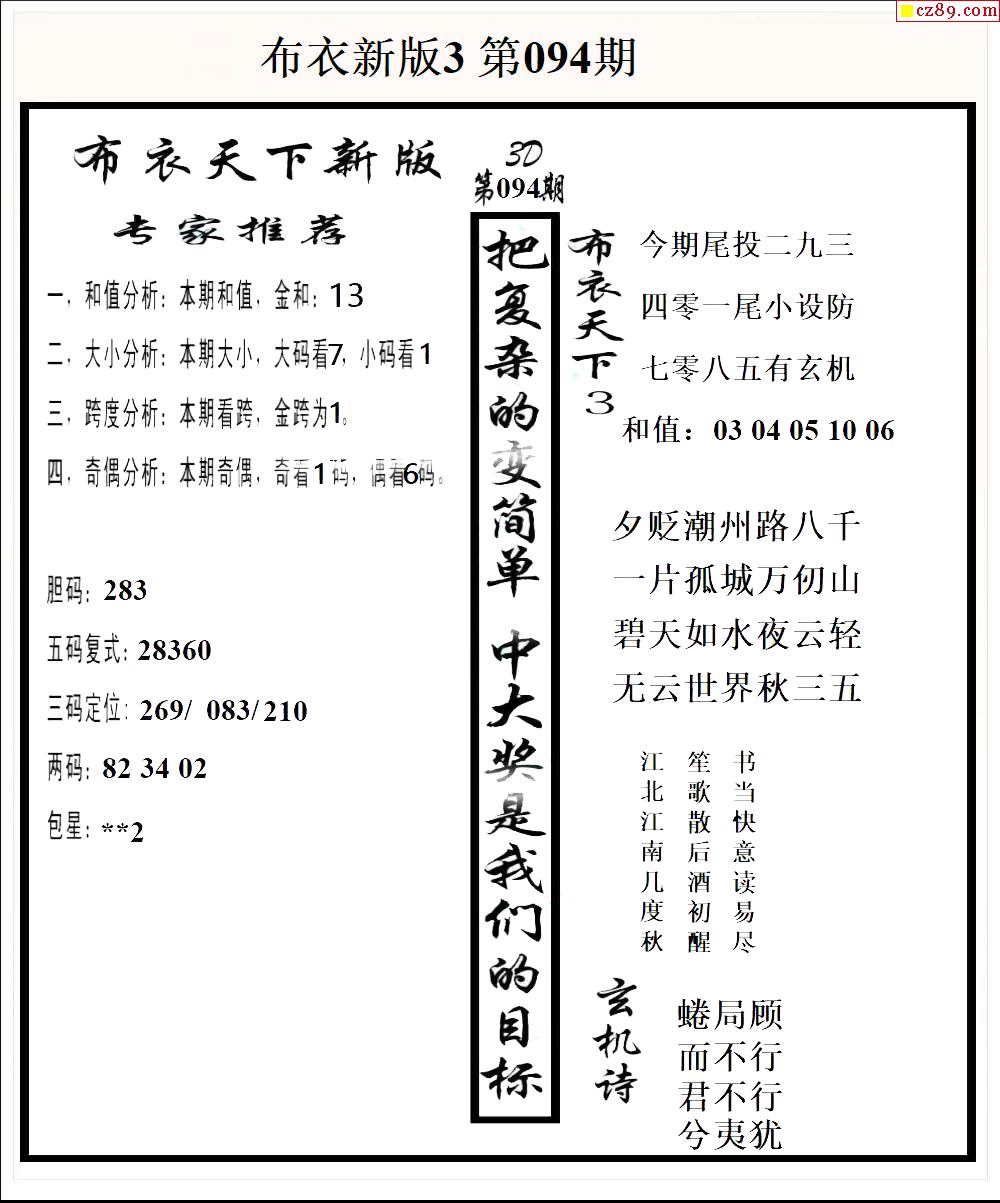 cz89.com
布衣新版3 第094期
布衣天下新版
专家推荐
一，和值分析：本期和值，金和：13
二，大小分析：本期大小，大码看7，小码看1
三，跨度分析：本期看跨，金跨为1。
四，奇偶分析：本期奇偶，奇看1码，偶看6码。
胆码：283
五码复式：28360
三码定位：269/ 083/210
两码：82 34 02
包星：**2
3D
第094期
把复杂的变简单 中大奖是我们的目标
布衣天下3
今期尾投二九三
四零一尾小设防
七零八五有玄机
和值：03 04 05 10 06
夕贬潮州路八千
一片孤城万仞山
碧天如水夜云轻
无云世界秋三五
书当快意读易尽
笙歌散后酒初醒
江北江南几度秋
玄机诗
蜷局顾
而不行
君不行
兮夷犹